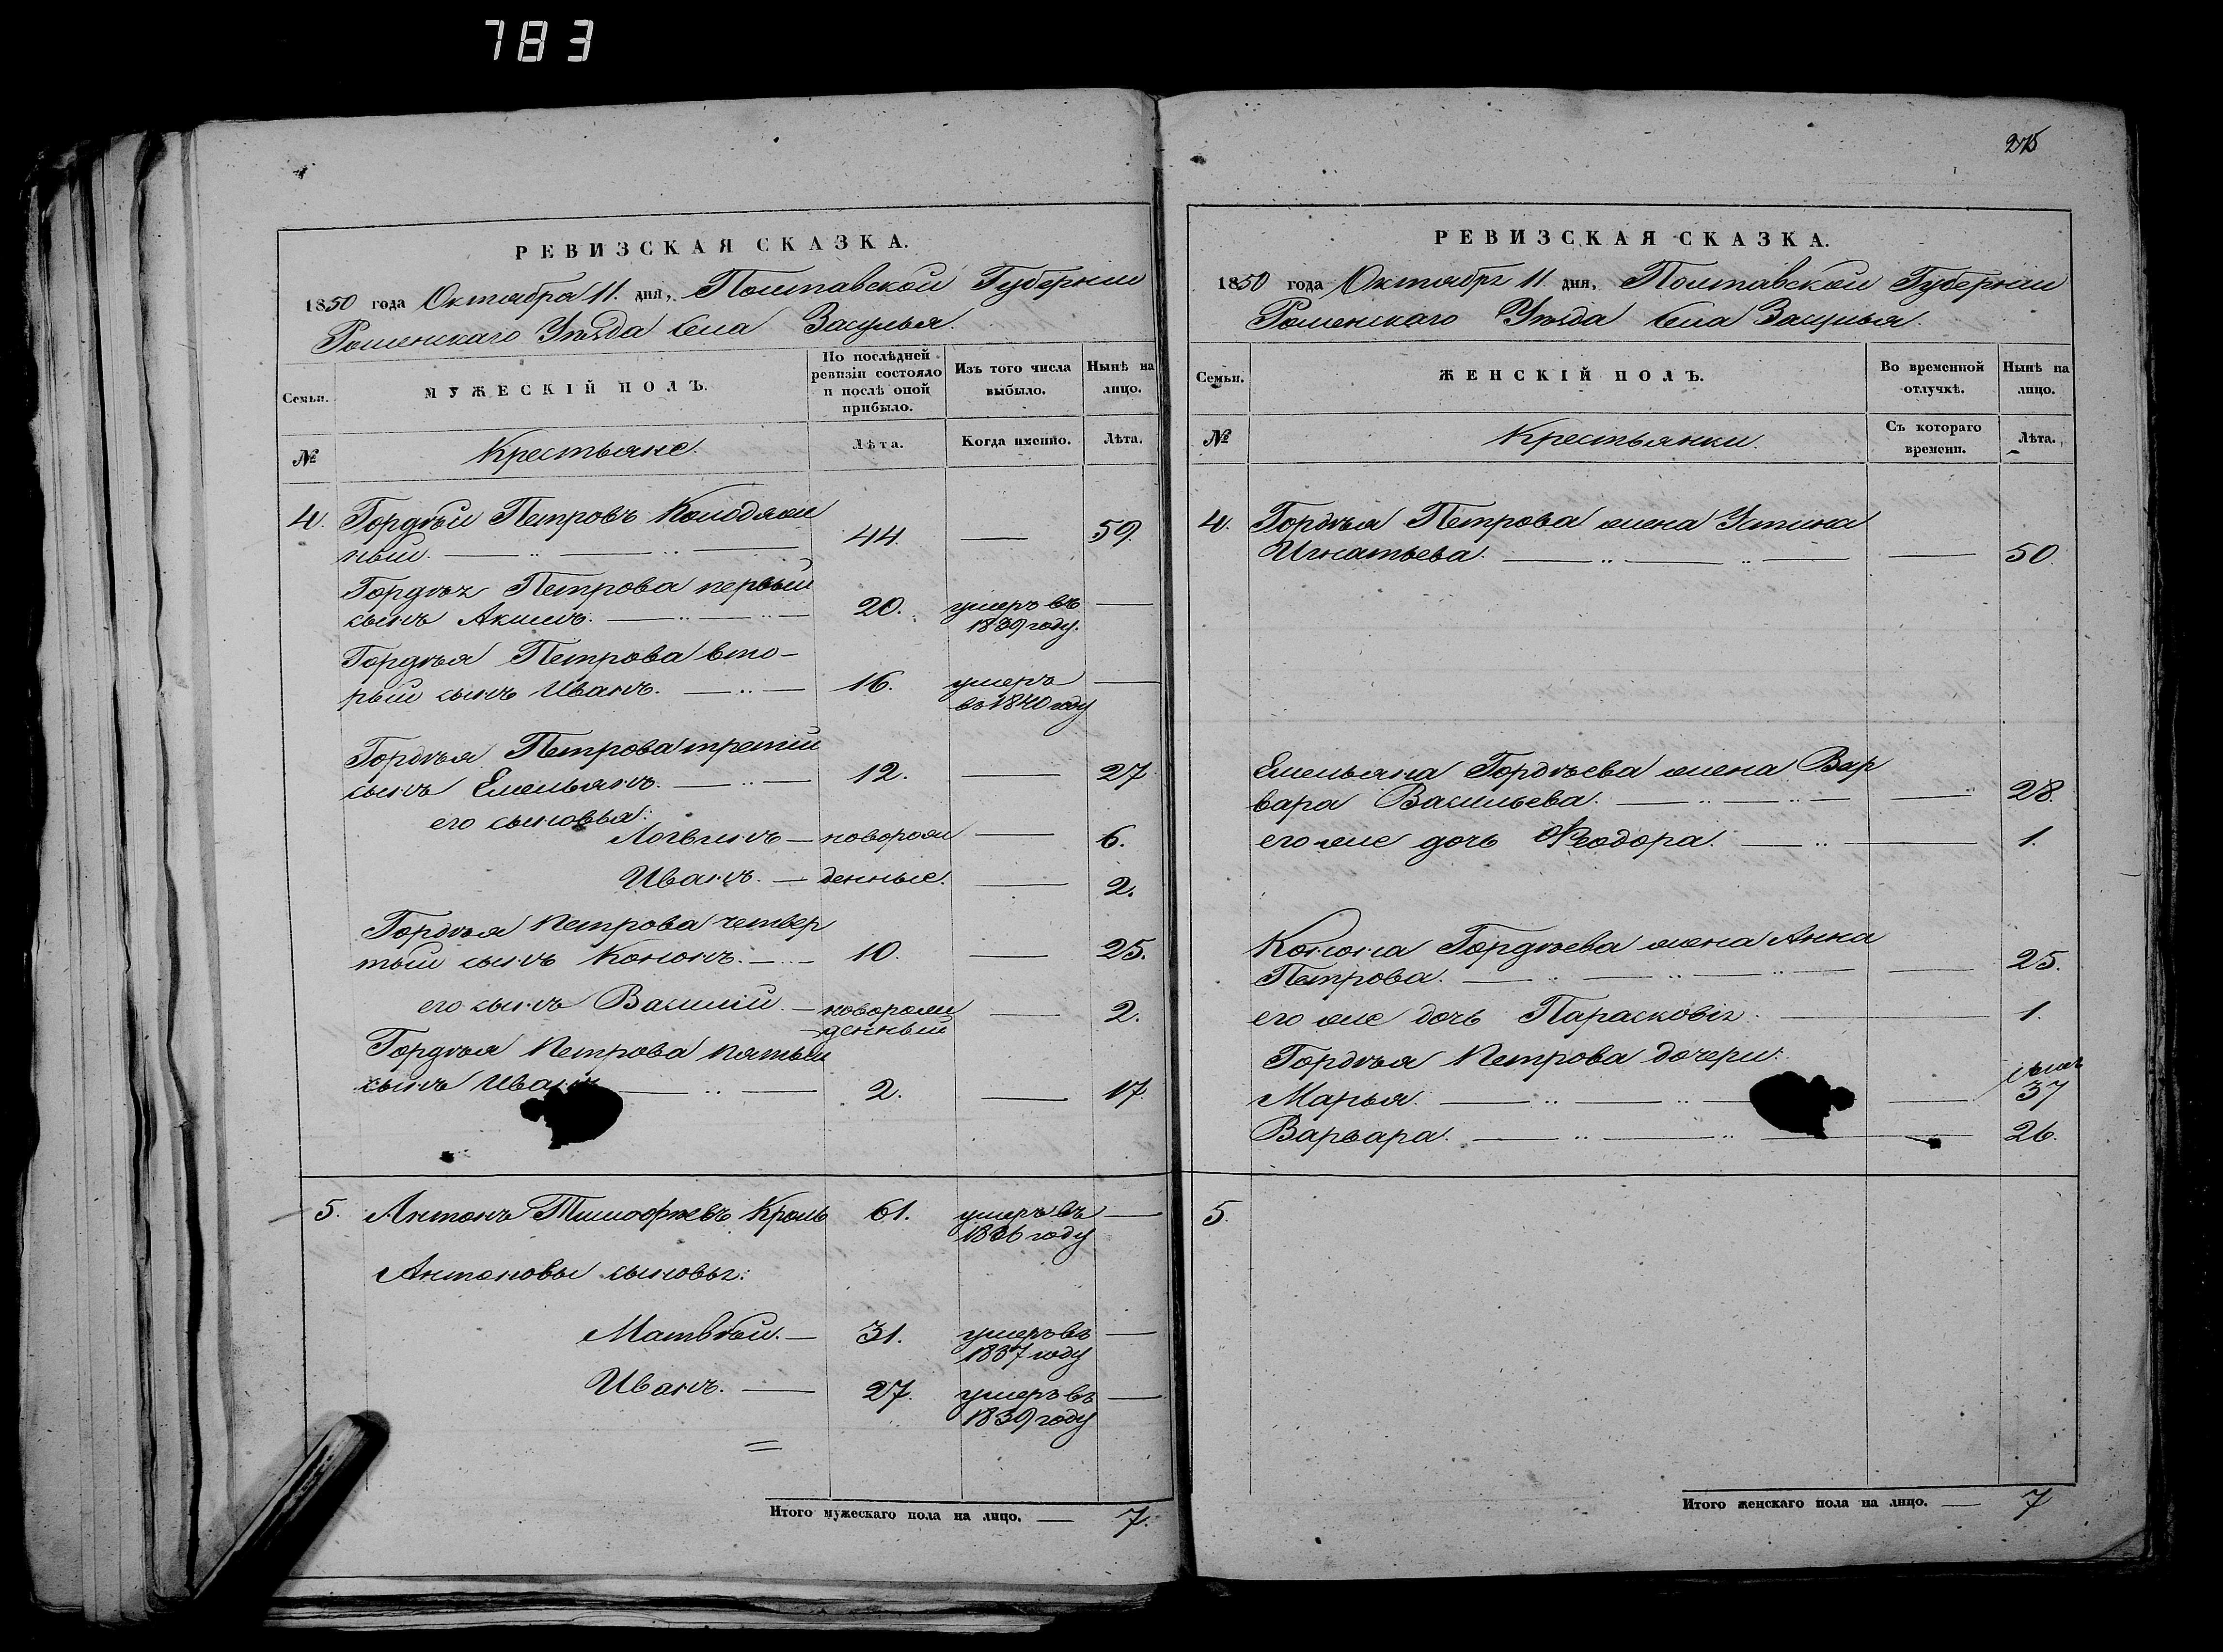 783
РЕВИЗСКАЯ СКАЗКА.
1850 года Октября 11. дня, Полтавской Губернии
Роменскаго Уѣзда села Засулья.
Семьи.
МУЖЕСКІЙ ПОЛЪ.
По послѣдней ревизіи состояло и послѣ оной прибыло.
Изъ того числа выбыло.
Нынѣ на лицо.
№
Крестьяне.
Лѣта.
Когда именно.
Лѣта.
4. Гордѣй Петровъ Колодяж
ный. 44. 59.
Гордѣя Петрова первый
сынъ Акимъ. 20. умеръ въ
1839 году.
Гордѣя Петрова вто-
рый сынъ Иванъ. 16. умеръ
въ 1840 году
Гордѣя Петрова третій
сынъ Емельянъ. 12. 27.
его сыновья:
Логвинъ — новорож 6.
Иванъ. — денные. 2.
Гордѣя Петрова четвер
тый сынъ Кононъ. 10. 25.
его сынъ Василій. — новорож 2.
денный
Гордѣя Петрова пятый
сынъ Иванъ 2. 17.
5. Антонъ Тимофѣевъ Кроль 61. умеръ въ
1836 году
Антоновы сыновья:
Матвѣй. — 31. умеръ въ
1837 году
Иванъ. — 27. умеръ въ
1839 году
Итого мужескаго пола на лицо. — 7.
275
РЕВИЗСКАЯ СКАЗКА.
1850 года Октября 11 дня, Полтавской Губерніи
Роменскаго Уѣзда села Засулья.
Семьи.
ЖЕНСКІЙ ПОЛЪ.
Во временной отлучкѣ.
Нынѣ на лицо.
№
Крестьянки.
Съ котораго времени.
Лѣта.
4. Гордѣя Петрова жена Устина
Игнатьева. 50.
Емельяна Гордѣева жена Вар
вара Васильева. 28.
его же дочь Феодора. 1.
Конона Гордѣева жена Анна
Петрова. 25.
его же дочь Парасковія. 1.
Гордѣя Петрова дочери:
Марья. 37
Варвара. 26.
5.
Итого женскаго пола на лицо. — 7